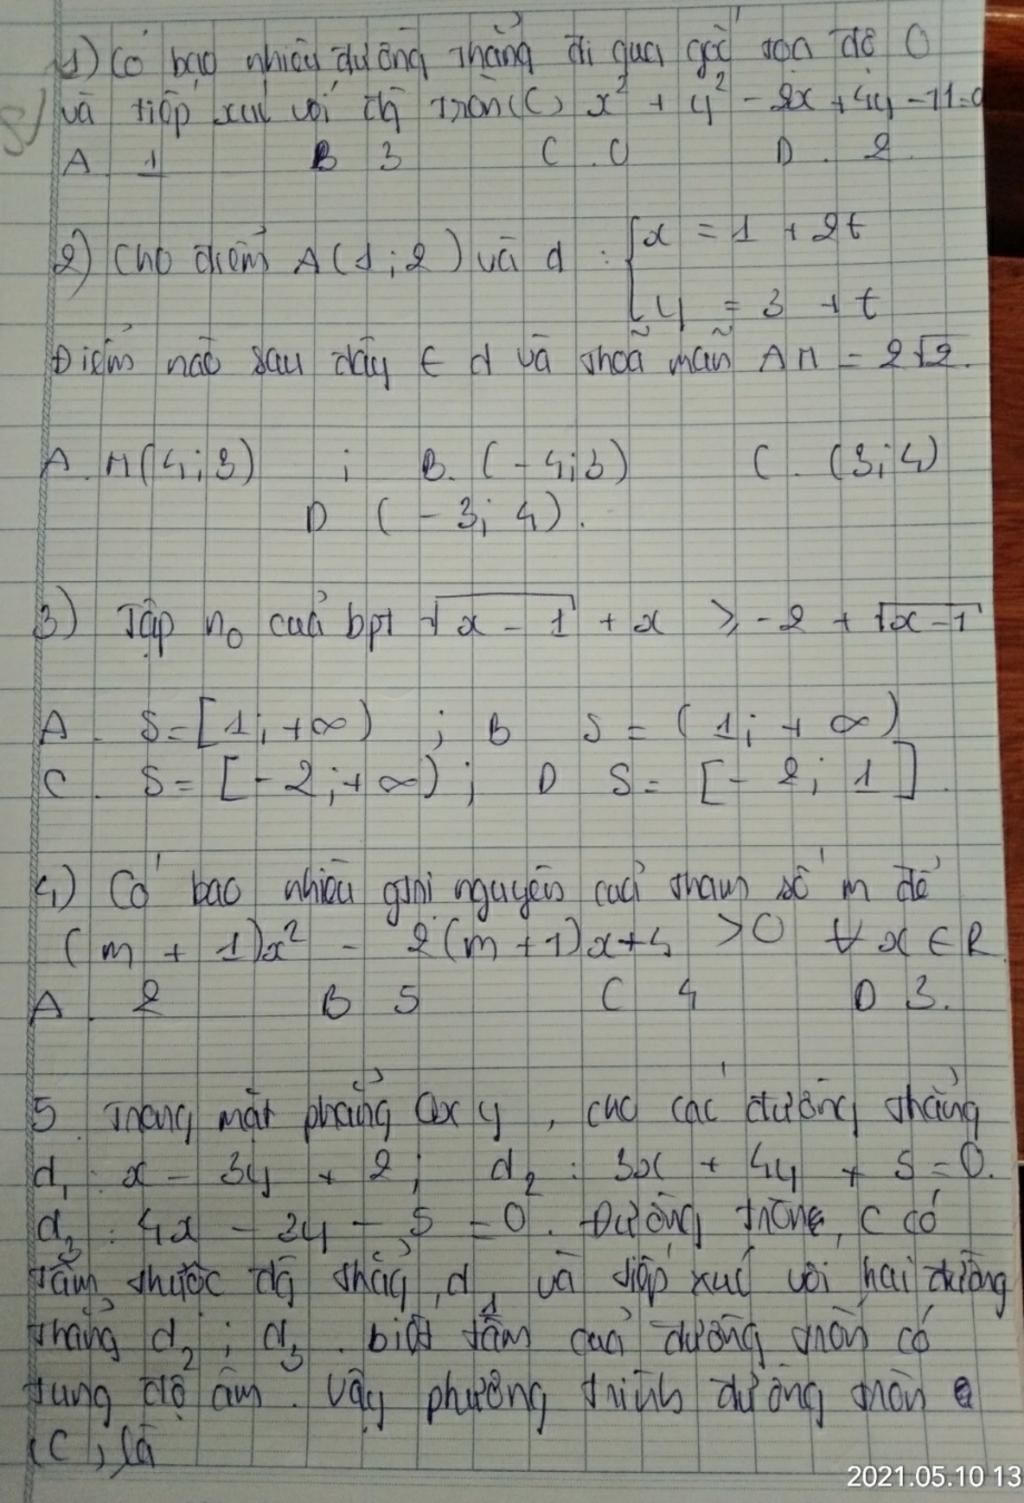 1) Có bao nhiêu đường thẳng đi qua gốc tọa độ O
và tiếp xúc với đg tròn (C) x² + y² - 2x + 4y - 11 = 0
A. 1 B 3 C. 0 D. 2
2) Cho điểm A(1; 2) và d : { x = 1 + 2t
y = 3 + t
Điểm nào sau đây ∈ d và thoã mãn AM = 2√2.
A. M(4; 3) ; B. (-4; 3) C. (3; 4)
D (-3; 4).
3) Tập n₀ của bpt √x - 1 + x ≥ -2 + √x-1
A. S = [1; +∞) ; B S = (1; +∞)
C. S = [-2; +∞) ; D S = [-2; 1].
4) Có bao nhiêu gtrị nguyên của tham số m để
(m + 1)x² - 2(m+1)x+4 >0 ∀x∈R
A. 2 B 5 C 4 D 3.
5 Trong mặt phẳng Oxy, cho các đường thẳng
d₁: x - 3y + 2; d₂ : 3x + 4y + 5 = 0.
d₃ : 4x - 3y - 5 = 0. Đường tròn C có
tâm thuộc đg thẳg d₁ và tiếp xúc với hai đường
thẳng d₂; d₃. biết tâm của đường tròn có
tung độ âm. Vậy phương trình đường tròn
(C) là
2021.05.10 13